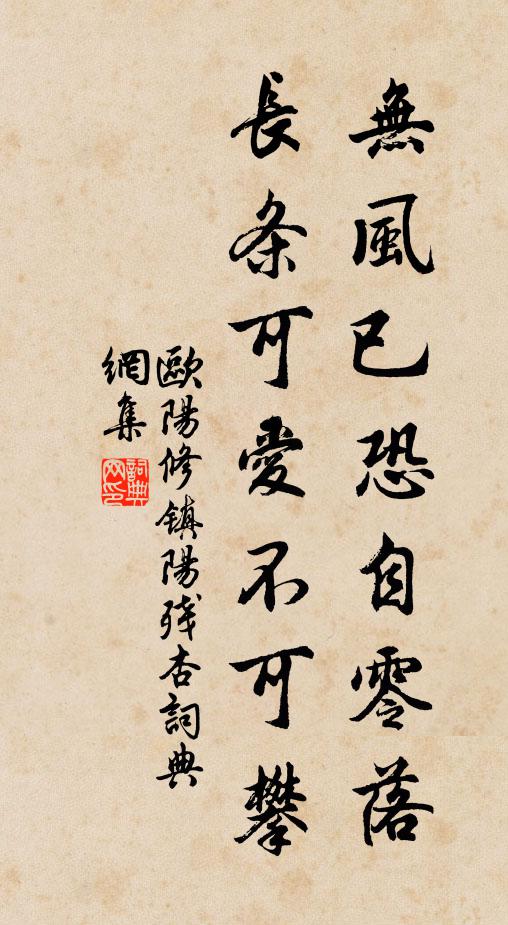 無風已恐自零落
長条可愛不可攀
歐陽修鎮陽殘杏詞典
網集
詞典
网印